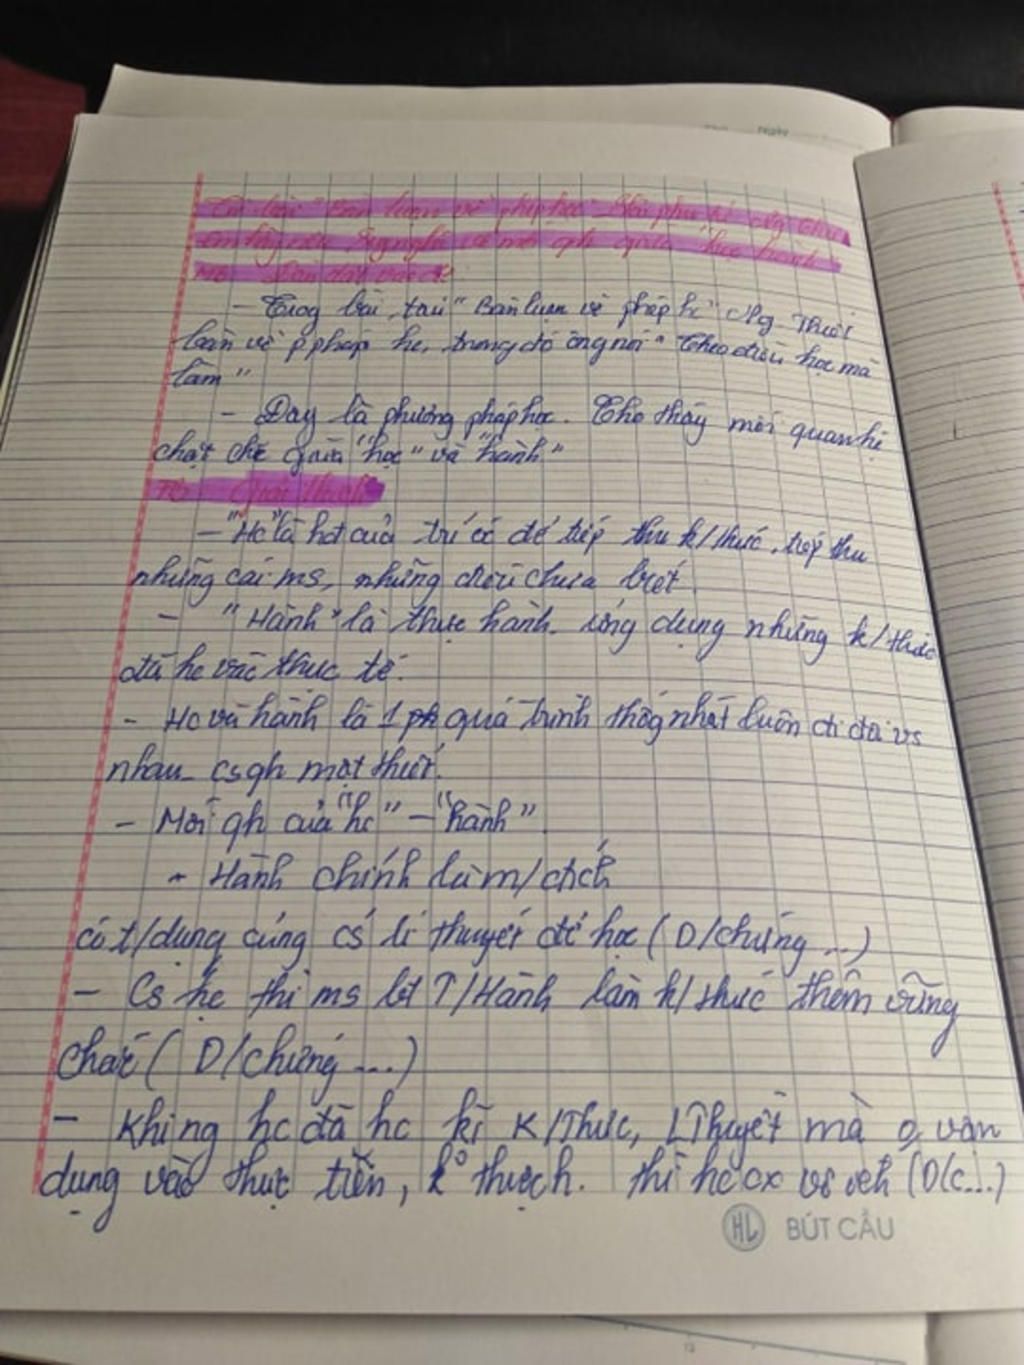 Ngày
Từ bài "Bàn luận về phép học" của
em hãy nêu suy nghĩ về mối qh giữa "học hành"
MB
- Trog bài tấu "Bàn luận về phép hc" Ng Thiếp
bàn về p pháp hc, trong đó ông nói "Theo điều học mà
làm"
- Đây là phương pháp học. Cho thấy mối quan hệ
chặt chẽ giữa "học" và "hành"
TB Giải thích
- "Hc" là hđ của trí óc để tiếp thu k/thức, tiếp thu
những cái ms, những điều chưa biết.
- "Hành" là thực hành, ứng dụng những k/thức
đã hc vào thực tế.
- Hc và hành là 1 quá trình thốg nhất luôn đi đôi vs
nhau cs qh mật thiết.
- Mối qh của "hc" - "hành"
- Hành chính là m/đích
có t/dụng củng cố lí thuyết để học (D/chứng ...)
- Cs hc thì ms bt T/Hành làm k/thức thêm vững
chắc (D/chứng ...)
- Khi ng hc đã hc kĩ K/Thức, LThuyết mà o vận
dụng vào thực tiễn, k° thực h. thì hc cx vô ích (D/c...)
HL BÚT CẦU